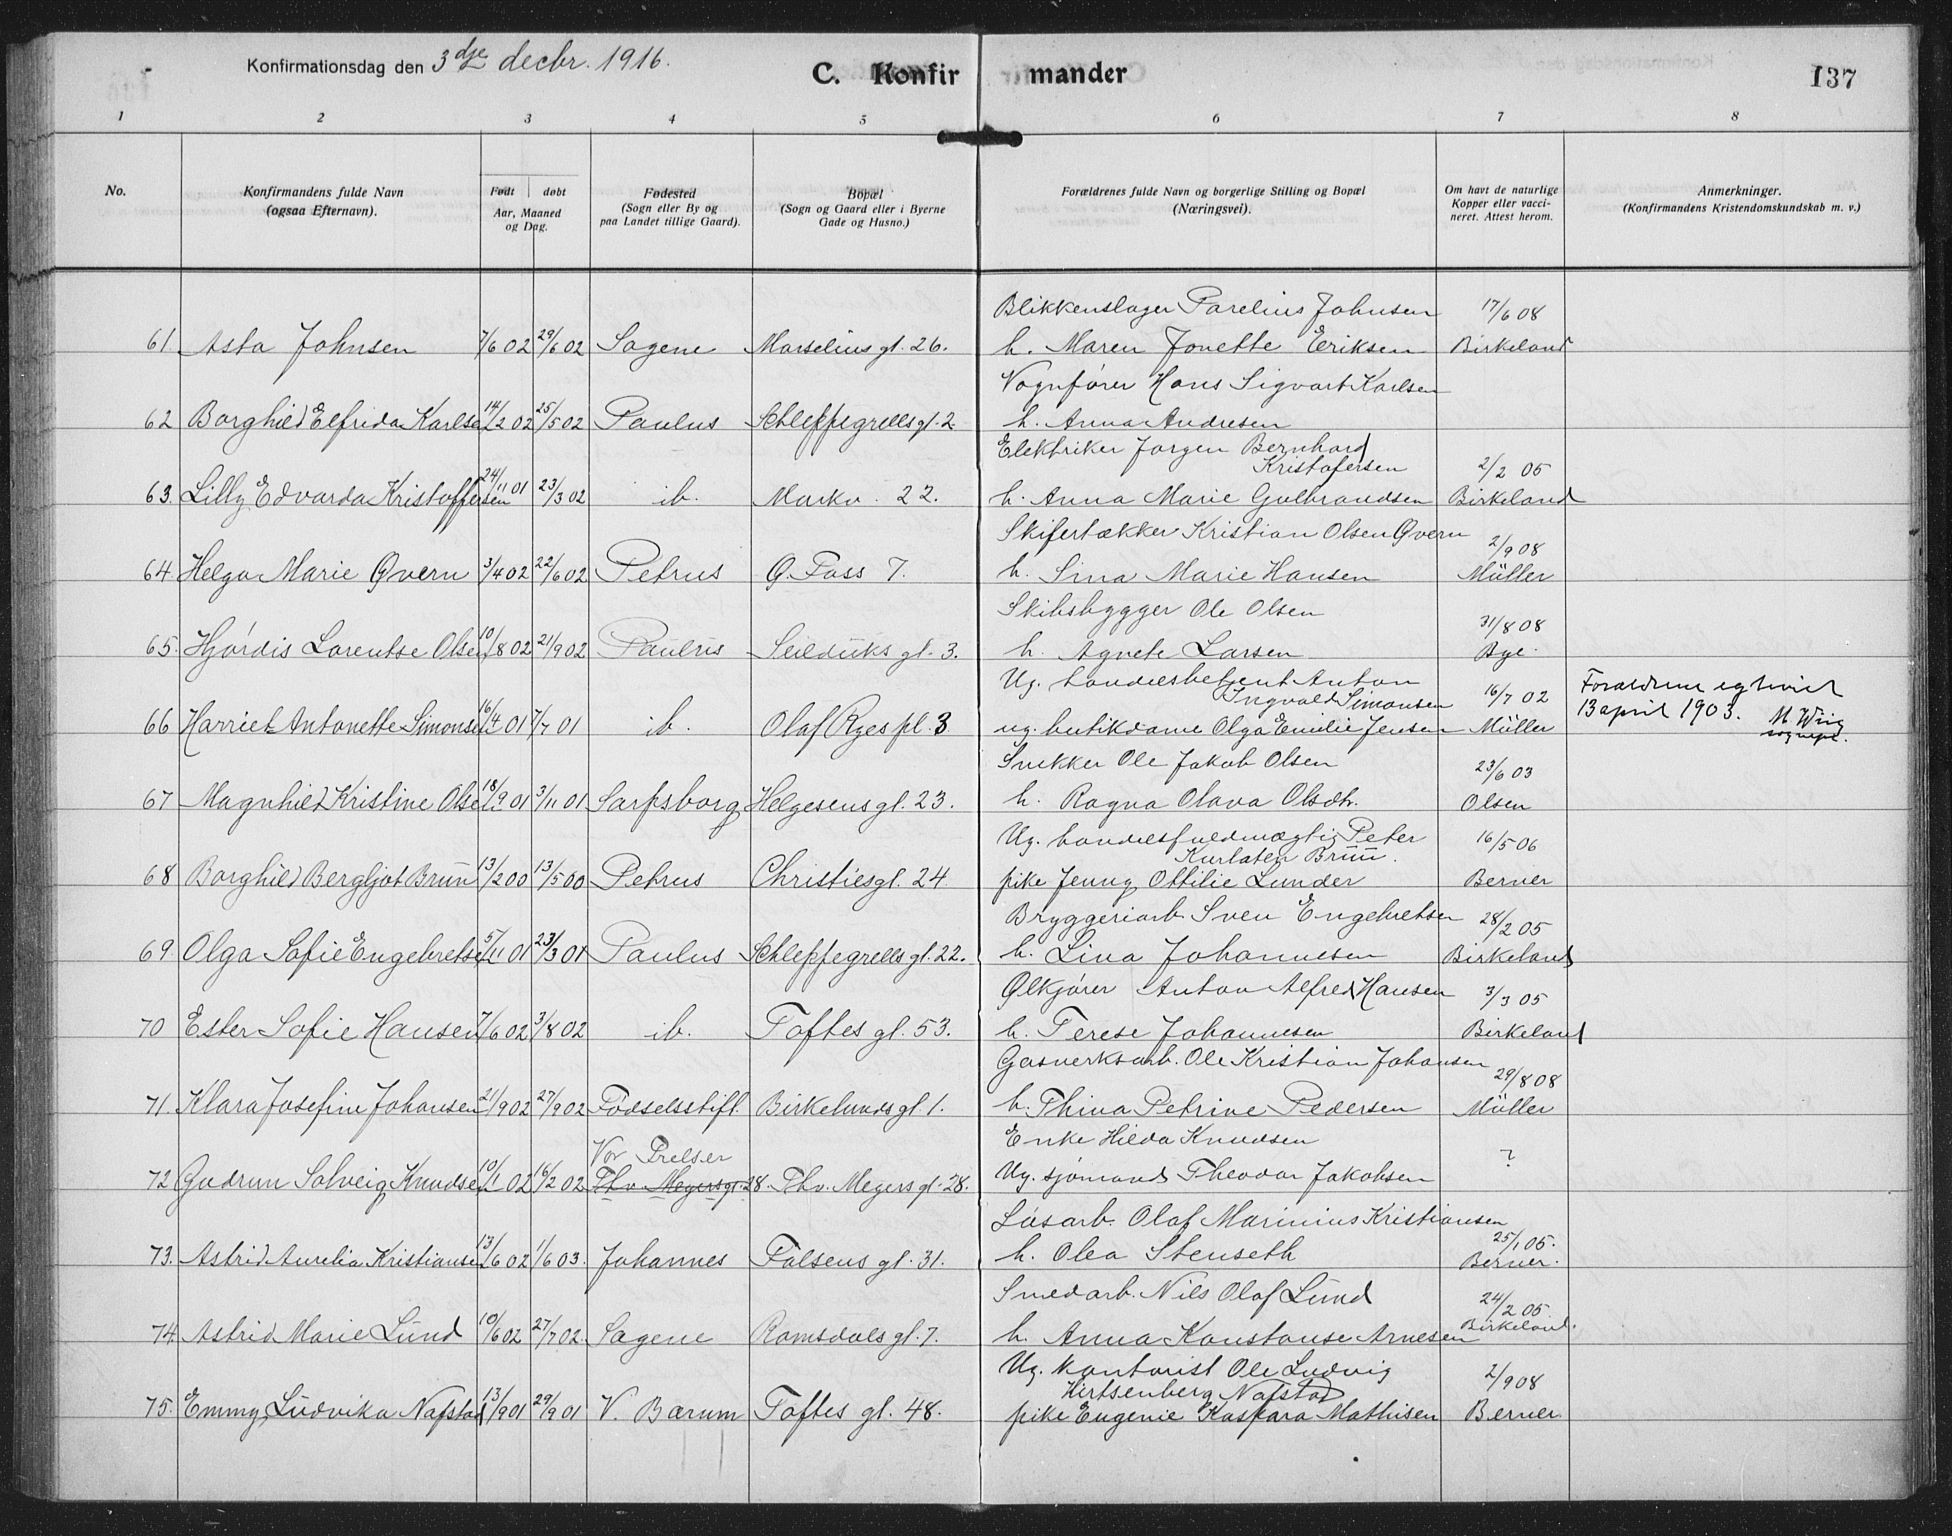 Konfirmationsdag den 3dje decbr. 1916.
C. Konfirmander
137
1 2 3 4 5 6 7 8
No.
Konfirmandens fulde Navn
(ogsaa Efternavn).
Født døbt
Aar, Maaned
og Dag.
Fødested
(Sogn eller By og
paa Landet tillige Gaard).
Bopæl
(Sogn og Gaard eller i Byerne
Gade og Husno.)
Forældrenes fulde Navn og borgerlige Stilling og Bopæl
(Næringsvei).
Om havt de naturlige
Kopper eller vacci-
neret. Attest herom.
Anmerkninger.
(Konfirmandens Kristendomskundskab m. v.)
Blikkenslager Parelius Johnsen 17/6 08
61. Asta Johnsen 7/6 02 29/6 02 Sagene Marselius gt. 26. h. Maren Jonette Eriksen Birkeland
Vognfører Hans Sigvart Karlsen
62 Borghild Elfrida Karlsen 14/2 02 25/5 02 Paulus Schleppegrells gt. 2 h. Anna Andresen
Elektriker Jørgen Bernhard
Kristofersen 2/2 05
63. Lilly Edvarda Kristoffersen 24/11 01 23/3 02 ib. Markv. 22. h. Anna Marie Gulbrandsen Birkeland
Skifertækker Kristian Olsen Qvern 2/9 08
64 Helga Marie Qvern 3/4 02 22/6 02 Petrus G. Foss 7. h. Sina Marie Hansen Müller
Skibsbygger Ole Olsen 31/8 08
65. Hjørdis Lorentse Olsen 10/8 02 21/9 02 Paulus Seilduks gt. 3. h. Agnete Larsen Bye.
Ug. handelsbetjent Anton
Ingvald Simonsen 16/7 02 Forældrene egteviet
13 april 1903. M Wiig
sognepr.
66 Harriet Antonette Simonsen 16/4 01 7/7 01 ib. Olaf Ryes pl. 3 ug. butikdame Olga Emilie Jensen Müller
Snekker Ole Jakob Olsen 23/6 03
67 Magnhild Kristine Olsen 18/9 01 3/11 01 Sarpsborg Helgesens gt. 23. h. Ragna Olava Olsdtr. Olsen
Ug. handelsfuldmægtig Peter 16/5 06
Brun.
68 Borghild Bergljot Brun 13/2 00 13/5 00 Petrus Christies gt. 24 pike Jenny Ottilie Lunder Berner
Bryggeriarb. Sven Engebretsen 28/2 05
69. Olga Sofie Engebretsen 5/11 01 23/3 01 Paulus Schleppegrells gt. 22. h. Lina Johannesen Birkeland
Ølkjører Anton Alfred Hansen 3/3 05
70 Ester Sofie Hansen 7/6 02 3/8 02 ib. Toftes gt. 53. h. Terese Johannesen Birkeland
Gasverksarb. Ole Kristian Johansen 29/8 08
71. Klara Josefine Johansen 21/9 02 27/9 02 Fødselsstift. Birkelunds gt. 1. h. Thina Petrine Pedersen Müller
Vor Frelser Enke Hilda Knudsen ?
72 Gudrun Solveig Knudsen 10/1 02 16/2 02 Thv. Meyersgt. 28. Thv. Meyers gt. 28. Ug. sjømand Theodor Jakobsen
Løsarb. Olaf Marinius Kristiansen 25/1 05.
73. Astrid Aurelia Kristiansen 13/6 02 1/6 03. Johannes Falsens gt. 31. h. Olea Stenseth Berner.
Smedarb. Nils Olaf Lund 24/2 05
74 Astrid Marie Lund 10/6 02 27/7 02. Sagene Romsdals gt. 7. h. Anna Konstanse Arnesen Birkeland.
Ug. kontorist Ole Ludvig 2/9 08
Hirtsenberg Nafstad
75. Emmy Ludvika Nafstad 13/9 01 29/9 01 V. Bærum Toftes gt. 48. pike Eugenie Kaspara Mathisen Berner.